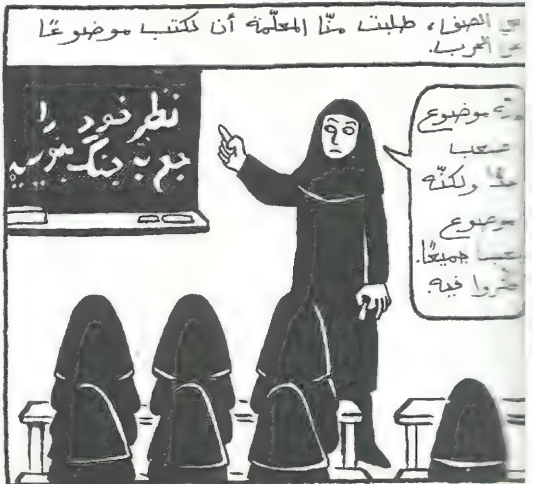 في الصف، طلبت منّا المعلّمة أن نكتب موضوعًا
عن الحرب.
نظر خود را
جع به جنگ بنویسید
موضوع
صعب
جدًا ولكنّه
موضوع
جميعًا.
فيه.